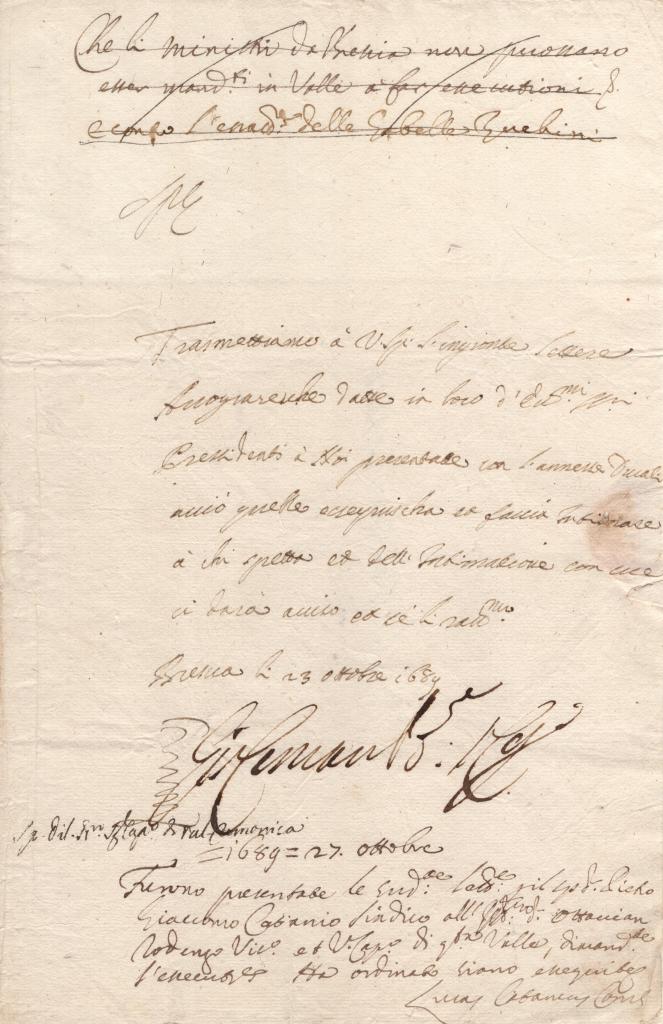 Che li ministri da Bressia non possano
esser mand.ti in Valle à far essecutioni p.
e contro l'essatt.ri delle Gabelle
Sp.le
Trasmettiamo à V. Sp. l'ingionte lettere
Avogaresche datte in loco d'Ecc.mi SS.ri
Pressidenti à Noi presentate con l'annesse Ducali
acciò quelle esseguischa et faccia intimare
à chi spetta et dell' Intimatione con sue
ci darà aviso et se li racc.mo
Brescia li 23 ottobre 1689
Sp. di Val Camonica
=1689= 27. ottobre
Furono presentate le sud.te lett.re Pietro
Giacomo Cattanio Sindico all' Ottavian
Rodengo Vic.o et V. Cap.o di q.ta Valle, dimand.te
l'essecut.ne Ha ordinato siano esseguite
Lucas Cattaneus Canc.